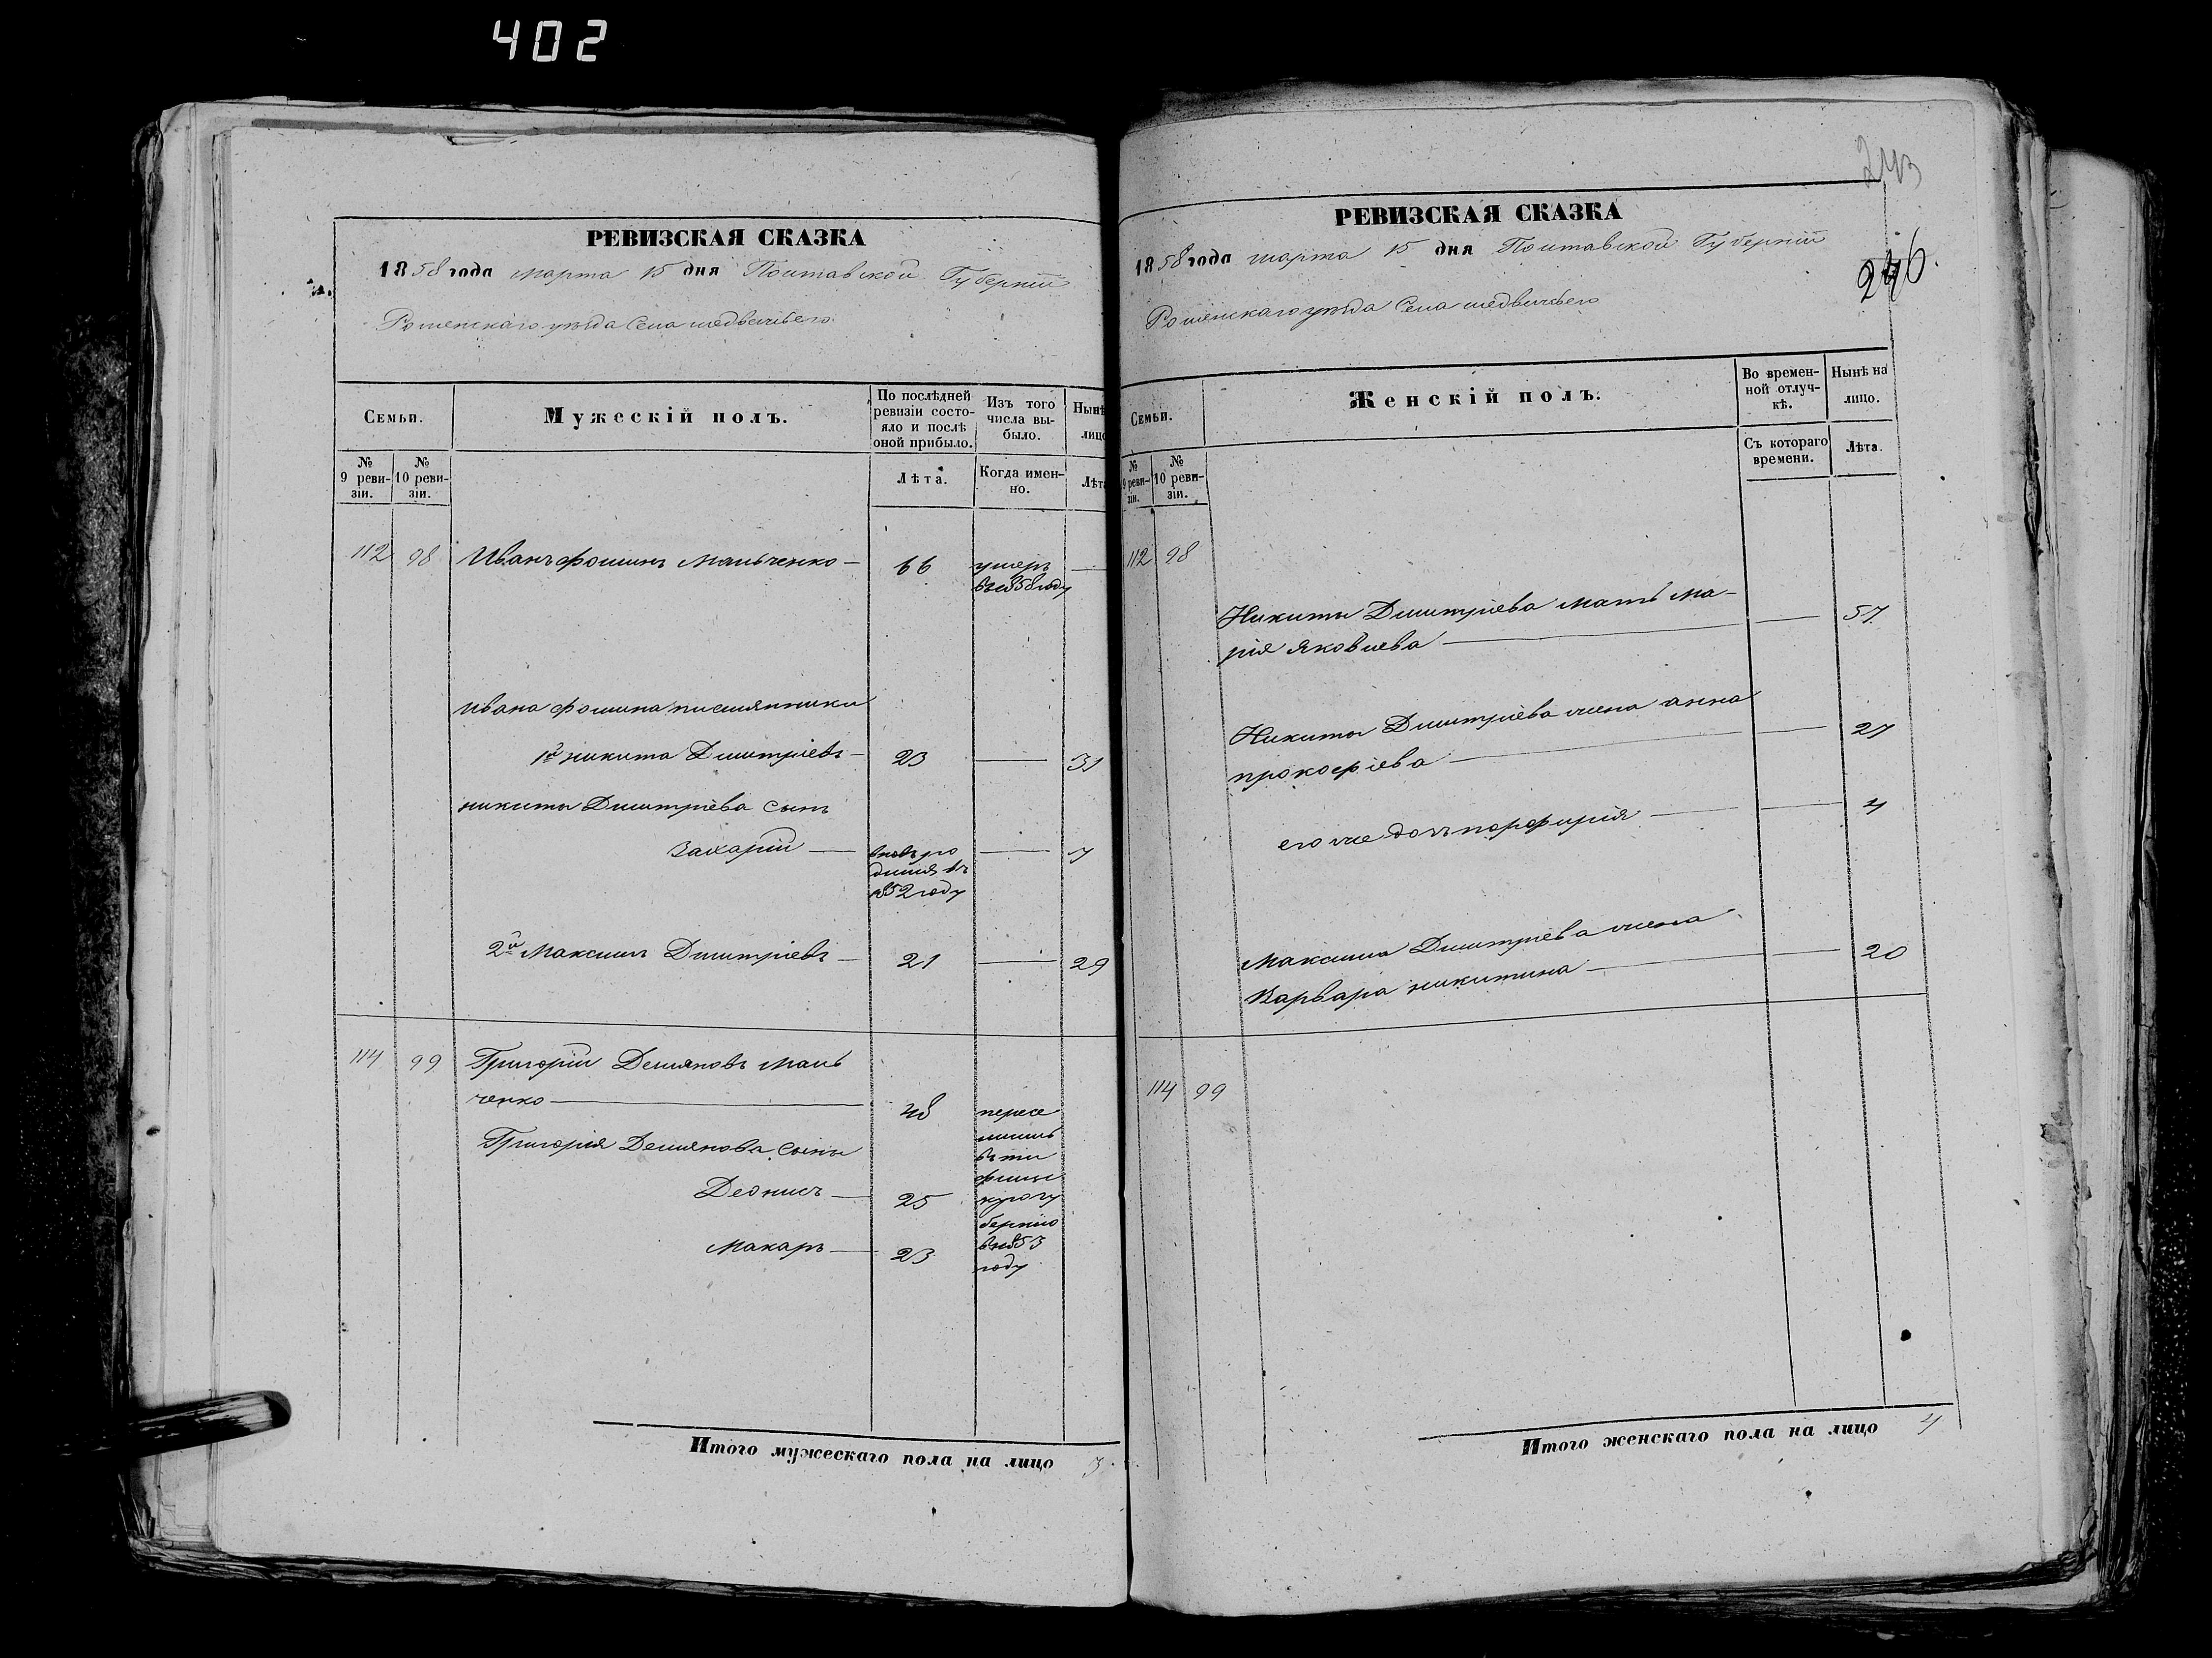 402
РЕВИЗСКАЯ СКАЗКА
1858 года марта 15 дня Полтавской Губерніи
Роменскаго уѣзда Села медвежьего
Семьи.
Мужескій полъ.
По послѣдней ревизіи состояло и послѣ оной прибыло.
Изъ того числа выбыло.
Нынѣ
лицо
№ 9 ревизіи.
№ 10 ревизіи.
Лѣта.
Когда именно.
Лѣта
112 98 Иванъ фоминъ Мальченко — 66 умеръ —
въ 1858 году
Ивана фомина племянники
1й никита Дмитріевъ — 23 — 31
никиты Дмитріева сынъ
Захарій — вновь ро — 7
дился въ
1852 году
2й Максимъ Дмитріевъ — 21 — 29
114 99 Григорій Демяновъ Маль
ченко — 48 пересе
Григорія Демянова сыны лились
въ ти
флис
Деонисъ — 25 кую гу
бернію
Макаръ — 23 въ 1853
году
Итого мужескаго пола на лицо 3.
243
246.
РЕВИЗСКАЯ СКАЗКА
1858 года марта 15 дня Полтавской Губерніи
Роменскаго уѣзда Села медвежьего
Семьи.
Женскій полъ.
Во временной отлучкѣ.
Нынѣ на лицо.
№ 9 ревизіи.
№ 10 ревизіи.
Съ котораго времени.
Лѣта.
112 98
Никиты Дмитріева мать Ма-
рія яковлева — — 57
Никиты Дмитріева жена анна
прокофіева — — 27
его же дочь порфирія — — 4
Максима Дмитріева жена
Варвара никитина — — 20
114 99
Итого женскаго пола на лицо 4